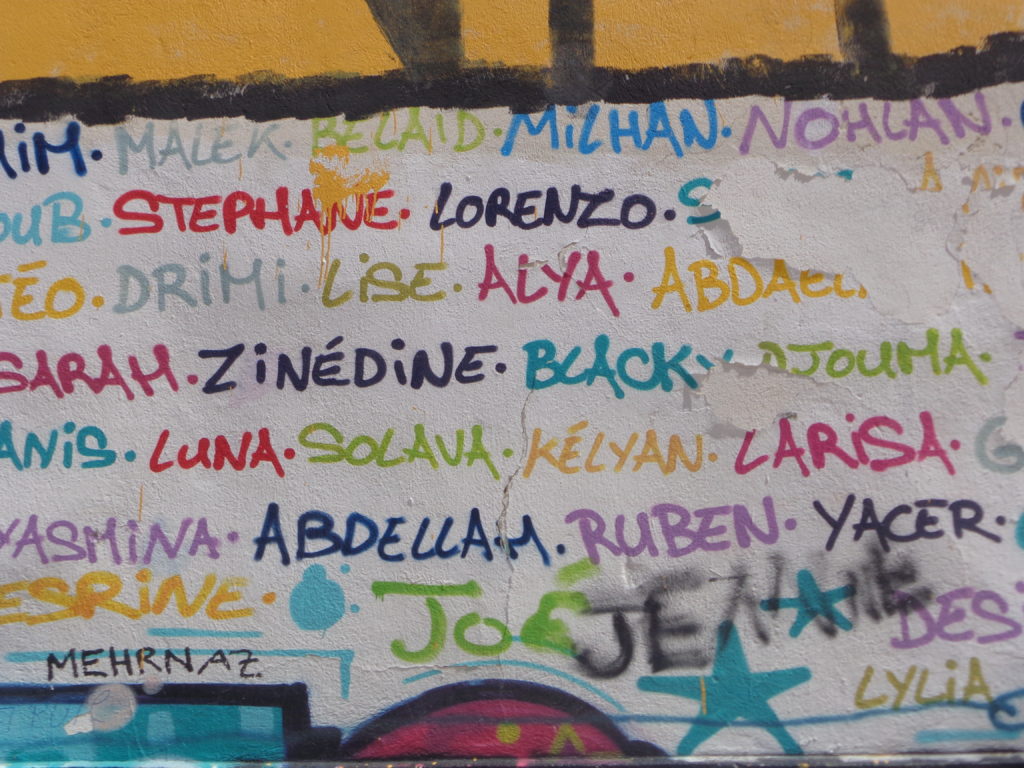 MALEK · BELAID · MiLHAN · NOHLAN ·
STEPHANE · LORENZO ·
TÉO · DRiMi · LiSE · ALYA ·
SARAH · ZiNÉDiNE · BLACK · DJOUMA ·
ANiS · LUNA · SOLAVA · KÉLYAN · LARiSA ·
YASMiNA · ABDELLAH · RUBEN · YACER ·
ESRiNE · JOÉ
MEHRNAZ
LYLiA